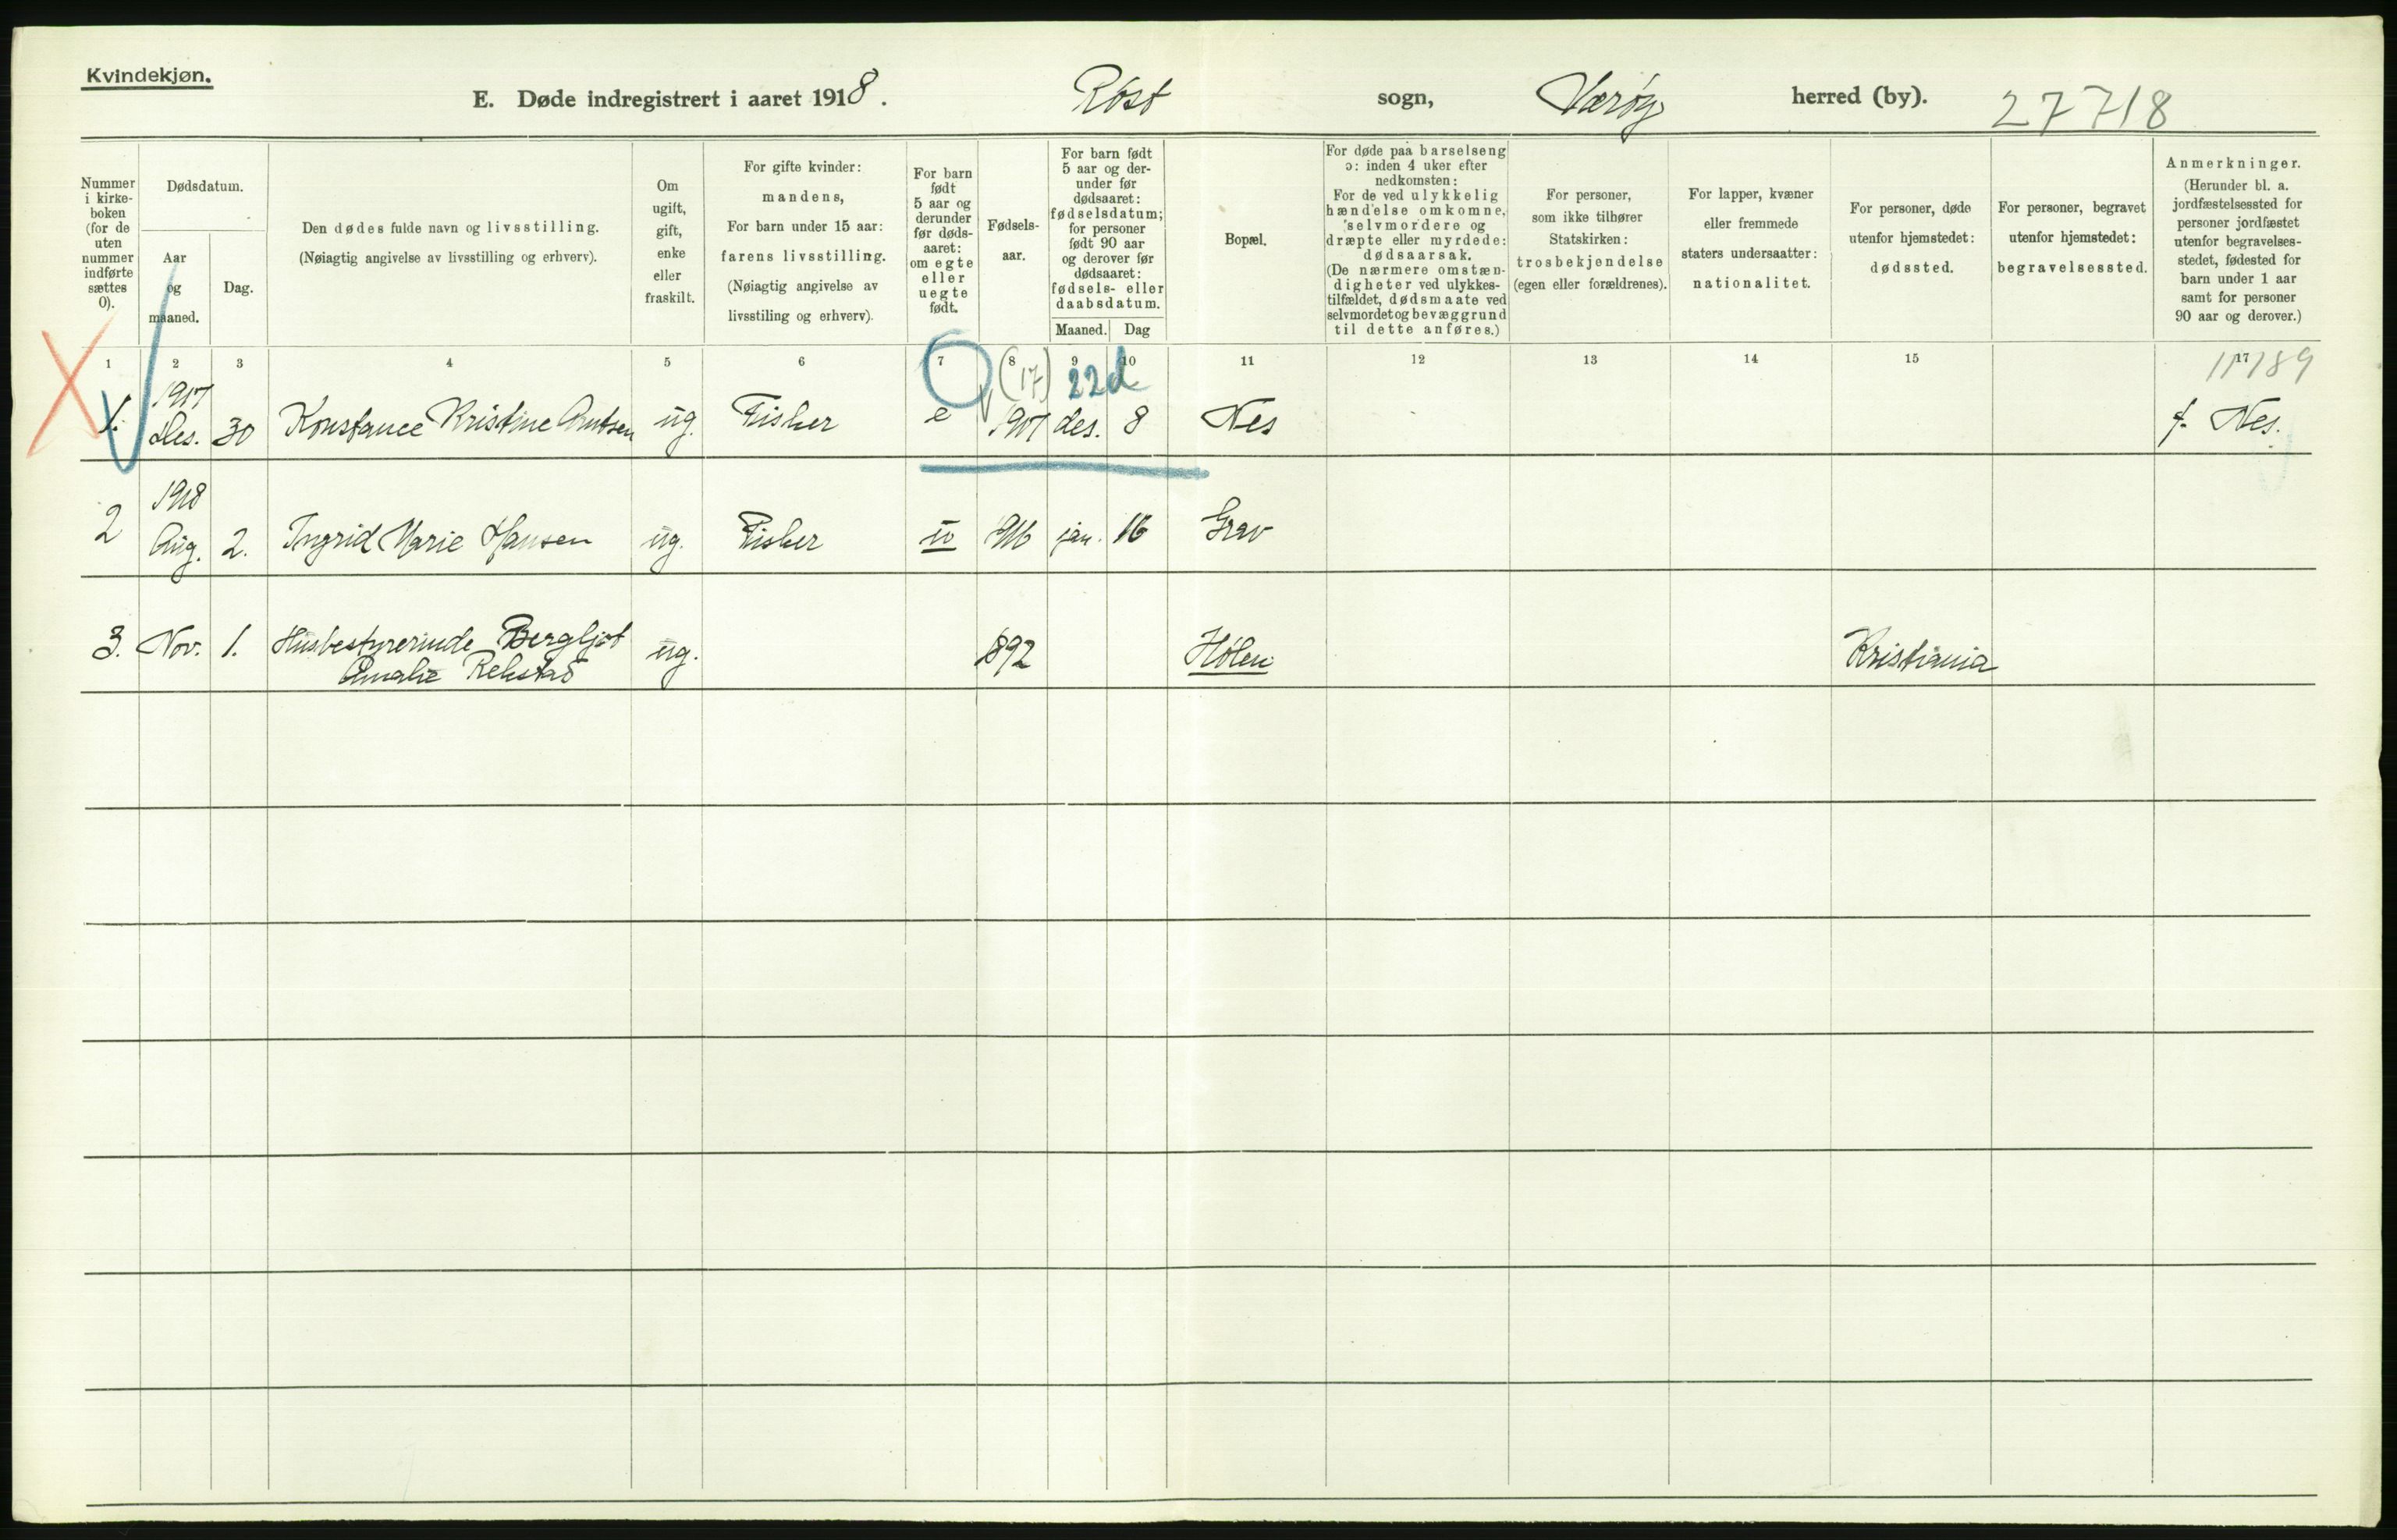 Kvindekjøn.
E. Døde indregistrert i aaret 1918. Røst sogn, Værøy herred (by). 27718
Nummer
i kirke-
boken
(for de
uten
nummer
indførte
sættes
0).
Dødsdatum.
Aar
og
maaned.
Dag.
Den dødes fulde navn og livsstilling.
(Nøiagtig angivelse av livsstilling og erhverv).
Om
ugift,
gift,
enke
eller
fraskilt.
For gifte kvinder:
mandens,
For barn under 15 aar:
farens livsstilling.
(Nøiagtig angivelse av
livsstiling og erhverv).
For barn
født
5 aar og
derunder
før døds-
aaret:
om egte
eller
uegte
født.
Fødsels-
aar.
For barn født
5 aar og der-
under før
dødsaaret:
fødselsdatum;
for personer
født 90 aar
og derover før
dødsaaret:
fødsels- eller
daabsdatum.
Maaned. Dag
Bopæl.
For døde paa barselseng
ɔ: inden 4 uker efter
nedkomsten:
For de ved ulykkelig
hændelse omkomne,
selvmordere og
dræpte eller myrdede:
dødsaarsak.
(De nærmere omstæn-
digheter ved ulykkes-
tilfældet, dødsmaate ved
selvmordet og bevæggrund
til dette anføres.)
For personer,
som ikke tilhører
Statskirken:
trosbekjendelse
(egen eller forældrenes).
For lapper, kvæner
eller fremmede
staters undersaatter:
nationalitet.
For personer, døde
utenfor hjemstedet:
dødssted.
For personer, begravet
utenfor hjemstedet:
begravelsessted.
Anmerkninger.
(Herunder bl. a.
jordfæstelsessted for
personer jordfæstet
utenfor begravelses-
stedet, fødested for
barn under 1 aar
samt for personer
90 aar og derover.)
1 2 3 4 5 6 7 8 9 10 11 12 13 14 15 17
(17) 22d 11789
1917
1. Des. 30 Konstance Kristine Antsen ug. Fisker e 1917 des. 8 Nes f. Nes.
1918
2 Aug. 2. Ingrid Marie Hansen ug. Fisker u 916 jan. 16 Grav
3. Nov. 1. Husbestyrerinde Bergljot ug. 892 Holen Kristiania
Amalie Rekstad